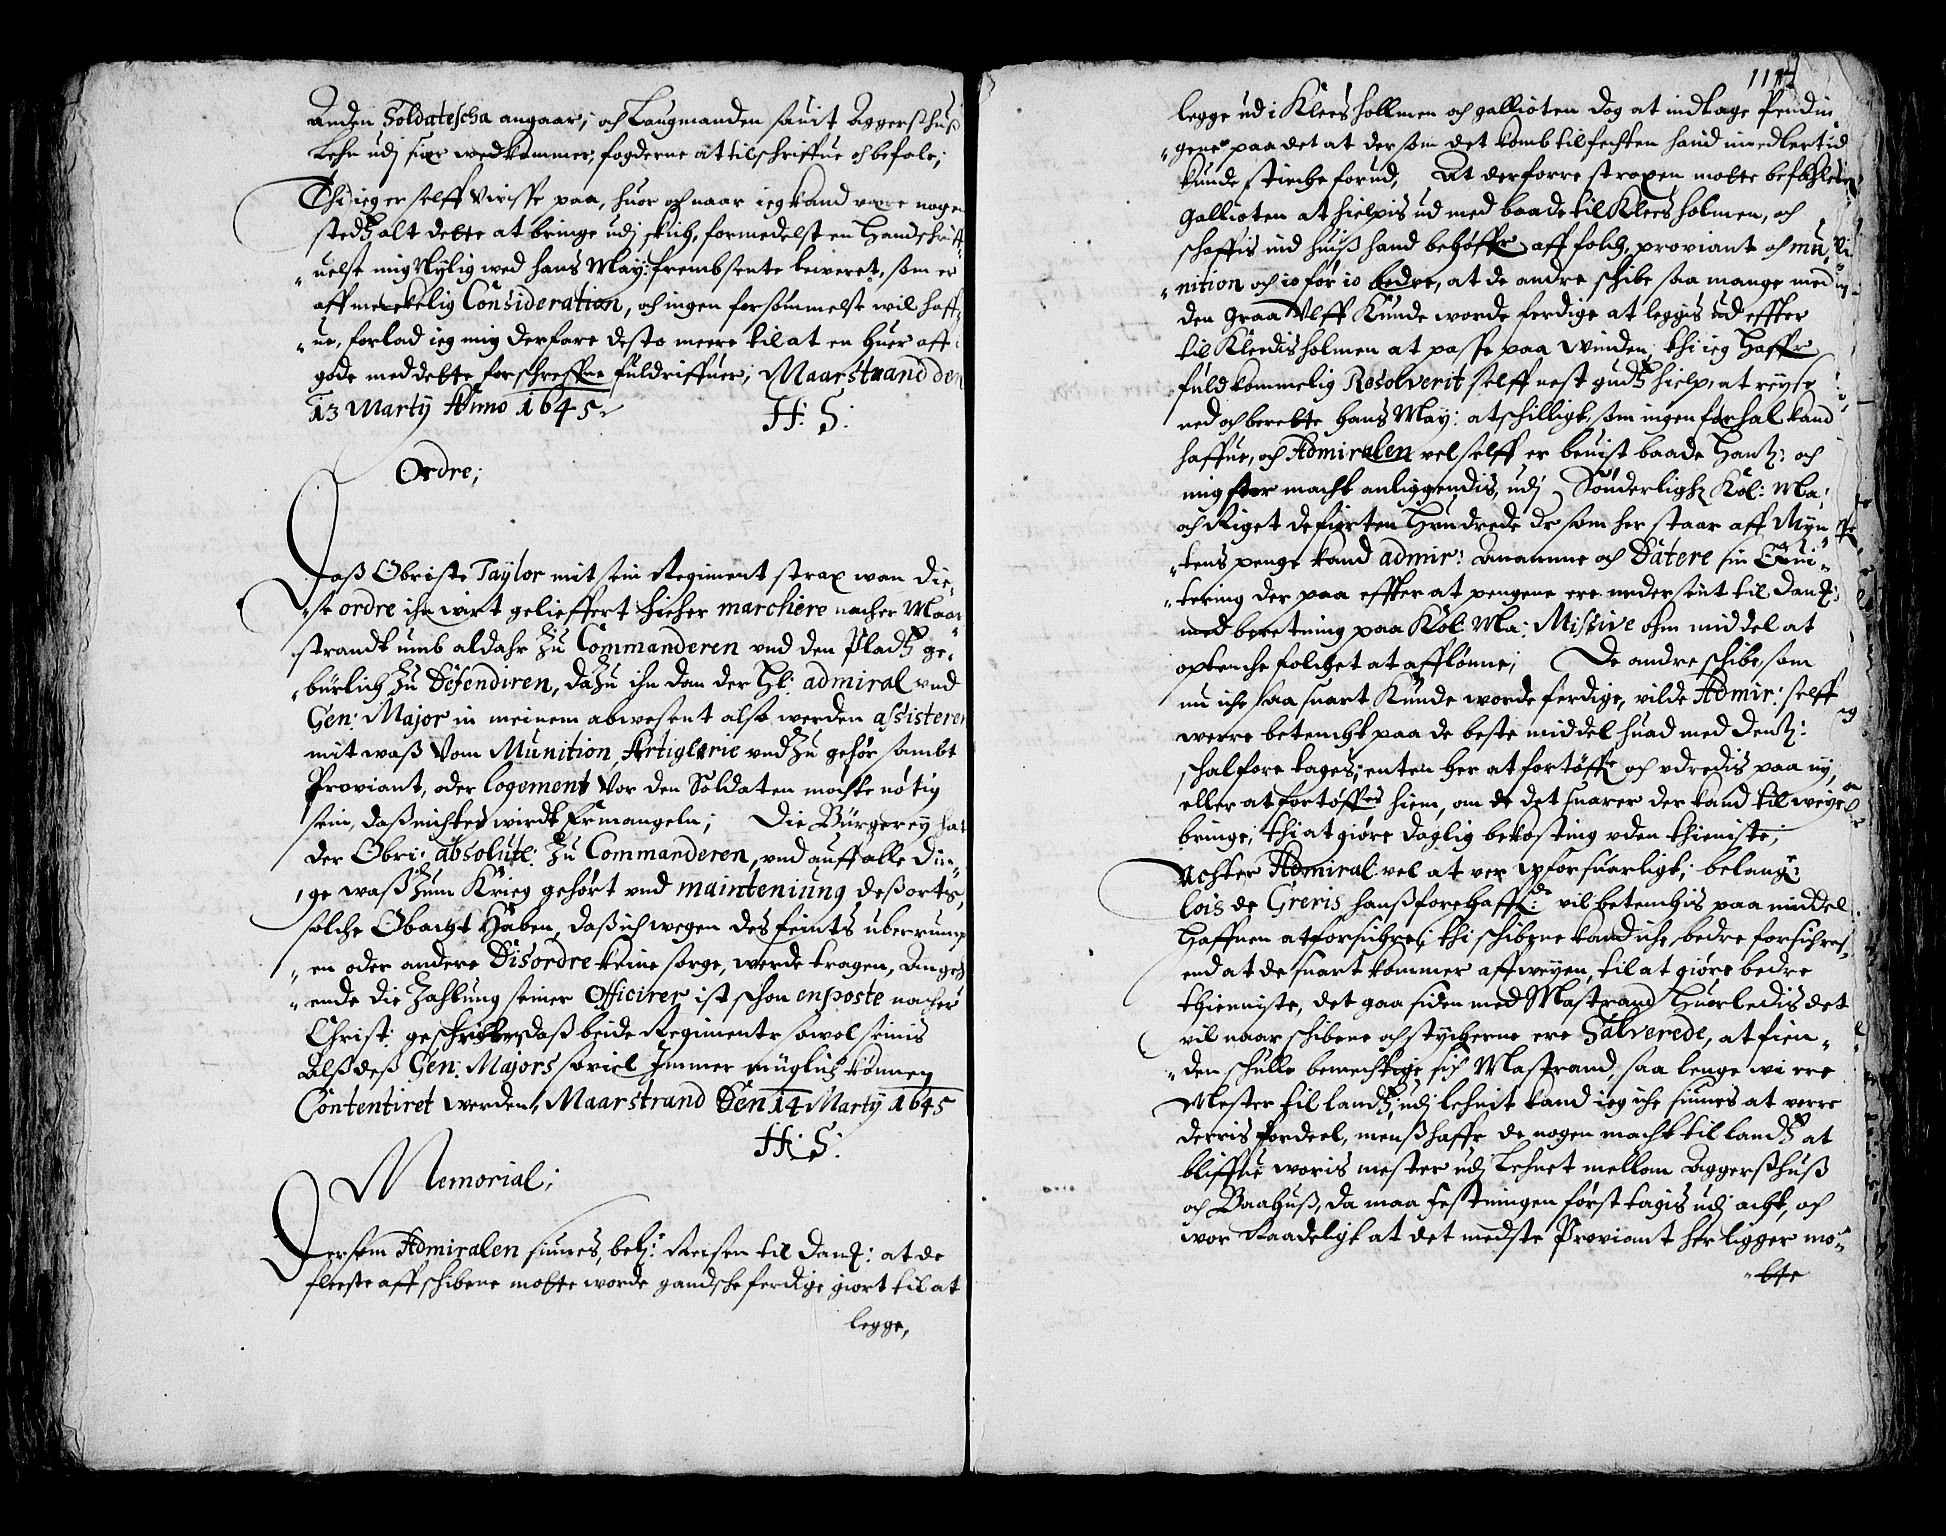 anden Soldatescha angaar; och Laugmanden sauit Aggershuß
Lehn udj sær wedkommer, fogderne at tilschriffue och befale;
Thi ieg er selff Uvisse paa, huor och naar ieg kand være nogen
stedtz alt dette at bringe udj skich, formedelst en Handschriff
uelse mig Nylig wed hans May: frembsente leiveret, som er
aff merckelig Consideration, och ingen forsømmelse wil haff-
ue, forlad ieg mig derfore desto meere til at en huer aff
gode med dette forschreffne fuldriffuer; Maarstrand den
13 Martij Anno 1645
H: S:
Ordre;
Daß Obriste Taylor mit sein Regiment strax wan die-
se ordre ihn wirt gelieffert hieher marchere nacher Maar
strandt umb aldahr zu Commanderen vnd den Pladtz ge-
bürlich zu Defendiren, dazu ihn dan der H: admiral vnd
Gen: Major in meinem abwesent also werden assisteren
mit waß Vom Munition, Artiglerie vnd zu gehör sambt
Proviant, oder logement Vor den Soldaten möchte nötig
sein, daß nichtes wirdt Ermangeln; Die Bürgereÿ hat
der Obri: absolute: zu Commanderen, vnd auff alle din-
ge waß zum Krieg gehört vnd mainteniung deß orts,
solche Obacht Haben, daß ich wegen des feints uberrump
en oder andere Disordre keine sorge, werde tragen, Angeh
ende die Zahlung seiner Officirer ist schon enposte nacher
Christ: geschriben, daß beide Regimente sowol seinis
Alß deß Gen: Majors soviel Immer müglich können
Contentiret werden, Maarstrand Den 14 Martij 1645
H: S:
Memorial;
Dersom Admiralen siunes, bel: Reisen til Dan: at de
fleeste aff schibene motte worde gandsche ferdige giort til at
legge,
117
legge ud i Klees hollmen och gallioten dog at indtage Pendin
gene paa det at dersom det komb til fechten hand imedlertid
kunde stinche forud, At derforre straxen motte befahles
Gallioten at hielpis ud med baade til Klees holmen, och
schaffis ind huiß hand behøffr aff folch, proviant och mu-
nition och io før io bedre, at de andre schibe saa mange med
den graa Ulff Kunde worde ferdige at leggis ud effter
til Kleedisholmen at passe paa Winden, thi ieg Haffr
fuldkommelig Resolverit selff nest gudtz hielp, at reyse
ned och berette hans May: atschilligt, som ingen forhal kand
haffue, och Admiralen vel selff er beuist baade Hantz: och
mig stor macht anliggendis, udj Sønderlighed Kol: Ma:
och Riget de fiorten Hundrede dr som her staar aff Myn
tens penge kand admir: Anamme och Qvitere sin Qui-
tering der paa effter at pengene ere under sent til Dan:
med beretning paa Kol: Ma: Missive om middel at
optenche folchet at afflønne; De andre schibe som
nu iche saa snart Kunde worde ferdige, vilde Admir: selff
werre betencht paa de beste middel huad med dentz:
schal fore tages; enten her at fortøffe och udredis paa ny,
eller at fortøffes hiem, om de det snarer der kand til weye
bringe; thi at giøre daglig bekosting uden thieniste;
Achter Admiral vel at ver uforsuarligt; belang:
lois de Greris hanß forehaffende vil betenchis paa middel
Haffnen at forsichre; thi schibene kand iche bedre forsichres
end at de snart kommer aff weyen, til at giøre bedre
thienniste, det gaa siden med Mastrand Huorledis det
vil naar schibene och stycherne ere Salverede, at fien-
den schulle bemechtige sig Mastrand, saa lenge wi ere
Mester til landtz udj lehnit kand ieg iche siunes at verre
derris fordeel, menß haffr de nogen macht til landtz at
bliffue woris mester udj Lehnet mellom Aggershuß
och Baahuß, da maa festningen først tagis udj acht, och
wor Raadeligt at det meste Proviant her ligger mo-
tte